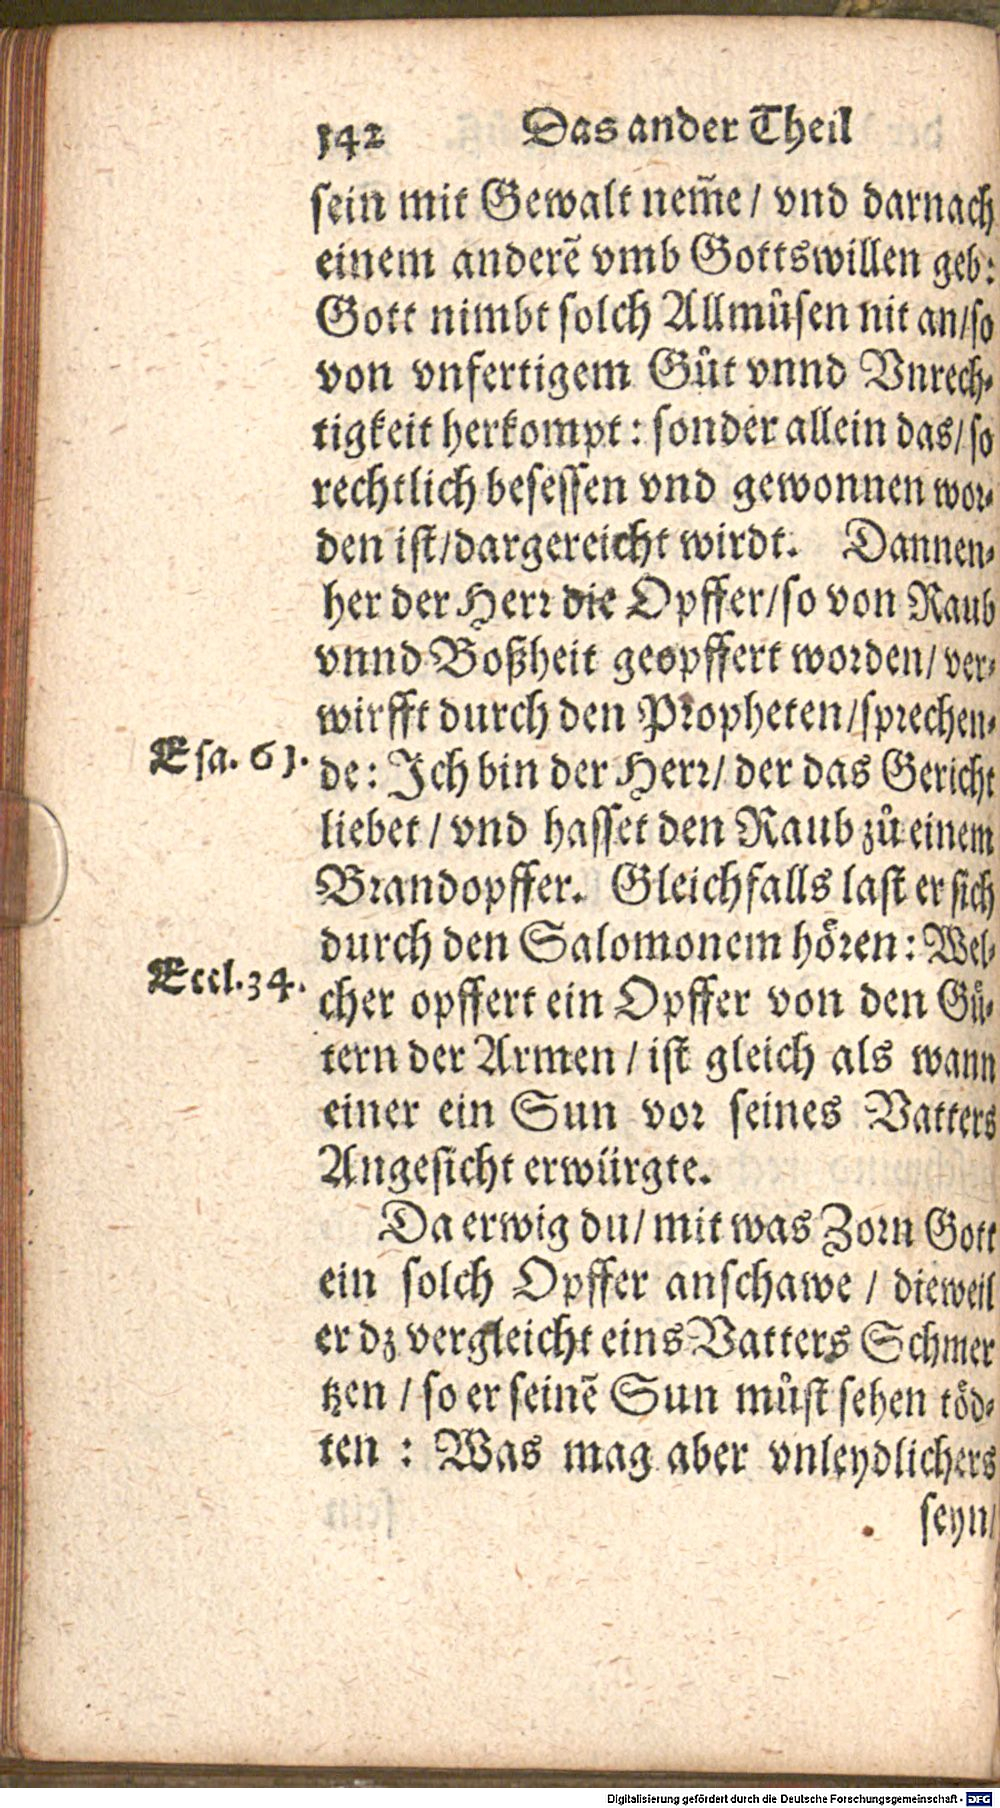 142 Das ander Theil
sein mit Gewalt nem̃e / vnd darnach
einem anderẽ vmb Gottswillen geb:
Gott nimbt solch Allmůsen nit an/so
von vnfertigem Gůt vnnd Vnrech-
tigkeit herkompt: sonder allein das/so
rechtlich besessen vnd gewonnen wor-
den ist/dargereicht wirdt. Dannen-
her der Herr die Opffer/so von Raub
vnnd Boßheit geopffert worden/ ver-
wirfft durch den Propheten/sprechen-
Esa. 61.
de: Ich bin der Herr/ der das Gericht
liebet / vnd hasset den Raub zů einem
Brandopffer. Gleichfalls last er sich
durch den Salomonem hören: Wel-
Eccl.34.
cher opffert ein Opffer von den Gů-
tern der Armen / ist gleich als wann
einer ein Sun vor seines Vatters
Angesicht erwürgte.
Da erwig du/ mit was Zorn Gott
ein solch Opffer anschawe / dieweil
er dz vergleicht eins Vatters Schmer
tzen / so er seinẽ Sun můst sehen töd-
ten : Was mag aber vnleydlichers
seyn/
Digitalisierung gefördert durch die Deutsche Forschungsgemeinschaft - DFG